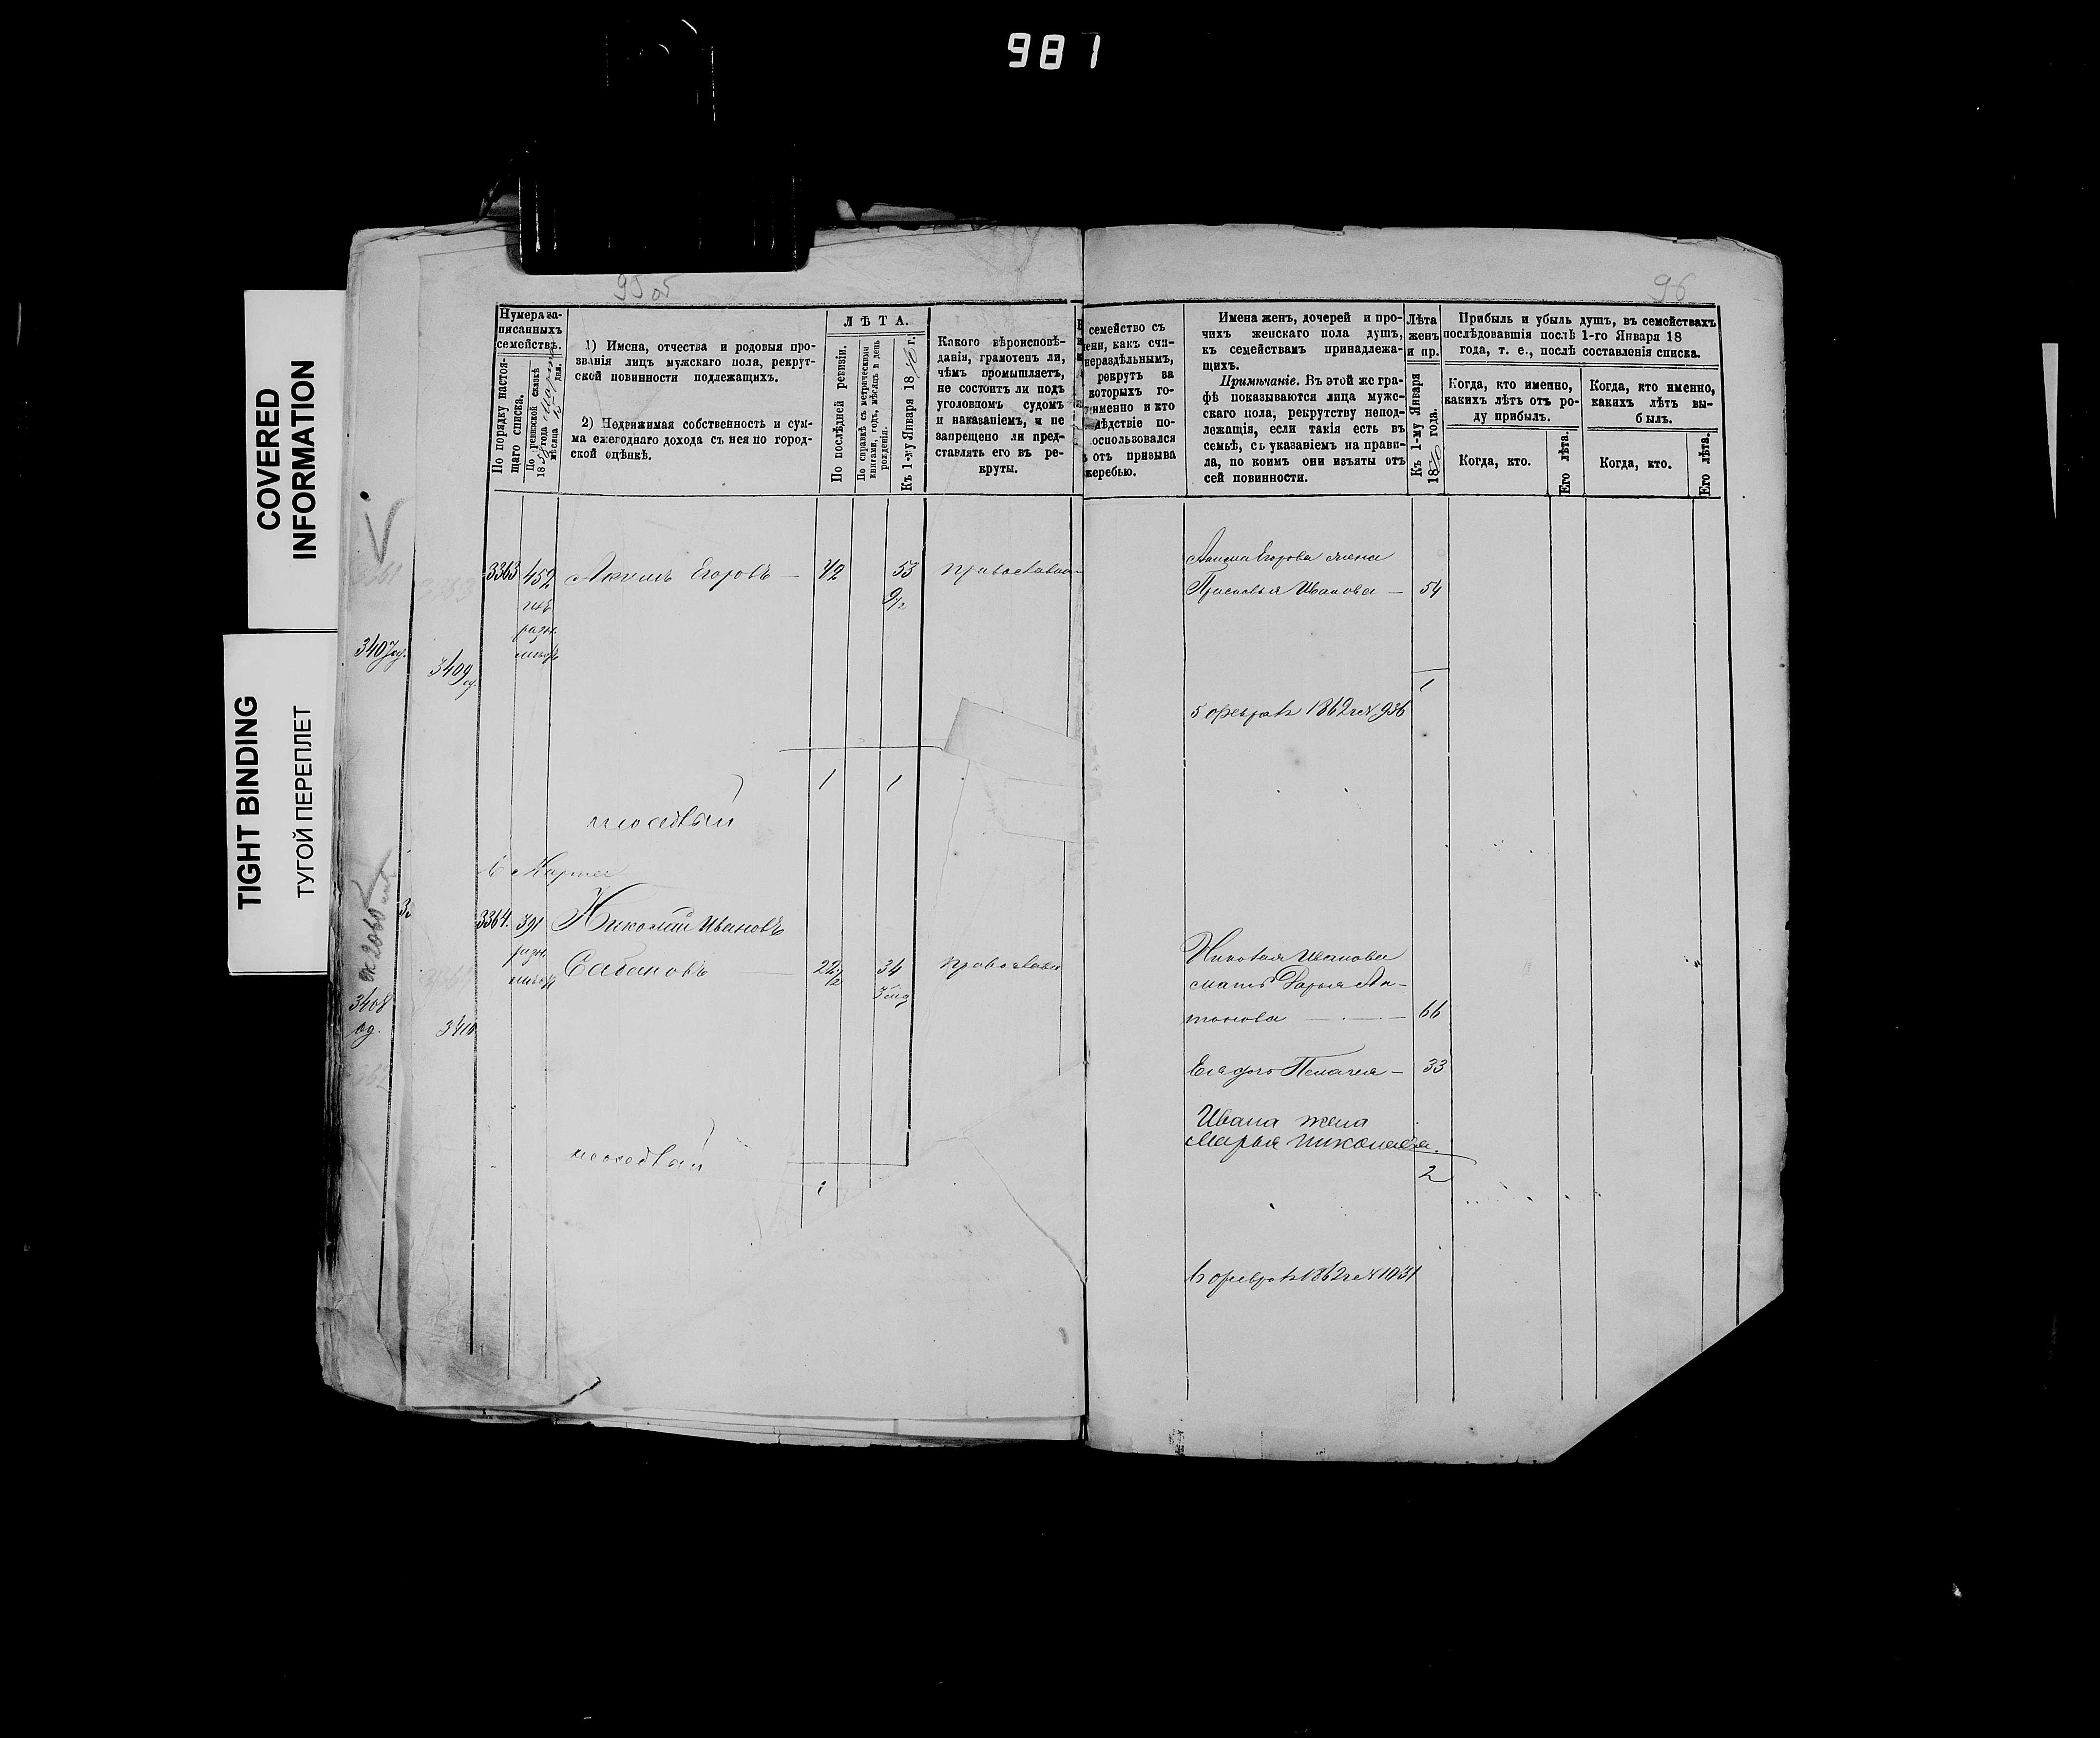 981
COVERED
INFORMATION
TIGHT BINDING
ТУГОЙ ПЕРЕПЛЕТ
95 об
Нумера за-
писанныхъ
семействъ.
По порядку настоя-
щаго списка.
По ревизской сказкѣ
18 года
мѣсяца дня.
1) Имена, отчества и родовыя про-
званія лицъ мужскаго пола, рекрут-
ской повинности подлежащихъ.
2) Недвижимая собственность и сум-
ма ежегоднаго дохода съ нея по город-
ской оцѣнкѣ.
ЛѢТА.
По послѣдней ревизіи.
По справкѣ съ метрическими
книгами, годъ, мѣсяцъ и день
рожденія.
Къ 1-му Января 18 г.
Какого вѣроисповѣ-
данія, грамотенъ ли,
чѣмъ промышляетъ,
не состоитъ ли подъ
уголовномъ судомъ
и наказаніемъ, и не
запрещено ли пред-
ставлять его въ ре-
круты.
3363 452 Акимъ Егоровъ — 42 53 православн
9/2
3407
3409
1 1
Марта
3364. 391 Николай Ивановъ
Сабановъ 22 1/2 34 православн
3408
од.
3410
1
96
семейство съ
ени, какъ счи-
нераздѣльнымъ,
рекрутъ за
которыхъ го-
именно и кто
лѣдствіе по-
оспользовался
отъ призыва
жеребью.
Имена женъ, дочерей и про-
чихъ женскаго пола душъ,
къ семействамъ принадлежа-
щихъ.
Примѣчаніе. Въ этой же гра-
фѣ показываются лица мужс-
скаго пола, рекрутству непод-
лежащія, если такія есть въ
семьѣ, съ указаніемъ на прави-
ла, по коимъ они изъяты отъ
сей повинности.
Лѣта
женъ
и пр.
Къ 1-му Января
18 года.
Прибыль и убыль душъ, въ семействахъ
послѣдовавшія послѣ 1-го Января 18
года, т. е., послѣ составленія списка.
Когда, кто именно,
какихъ лѣтъ отъ ро-
ду прибылъ.
Когда, кто именно,
какихъ лѣтъ вы-
былъ.
Когда, кто.
Его лѣта.
Когда, кто.
Его лѣта.
Акима Егорова жена
Прасковья Иванова — 54
1
5 февраля 1862 № 936
Николая Иванова
мать Дарья Ан-
тонова — 66
Пелагея — 33
Ивана жена
Марья Николаева.
2
6 февраля 1862 № 1031